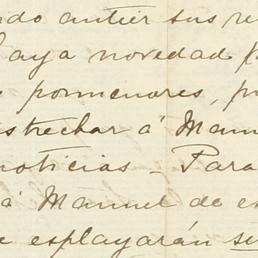 ido antier sus re
haya novedad p
s pormenores, p
strechar á Manu
noticias - Para
á Manuel de es
e esplayarán su